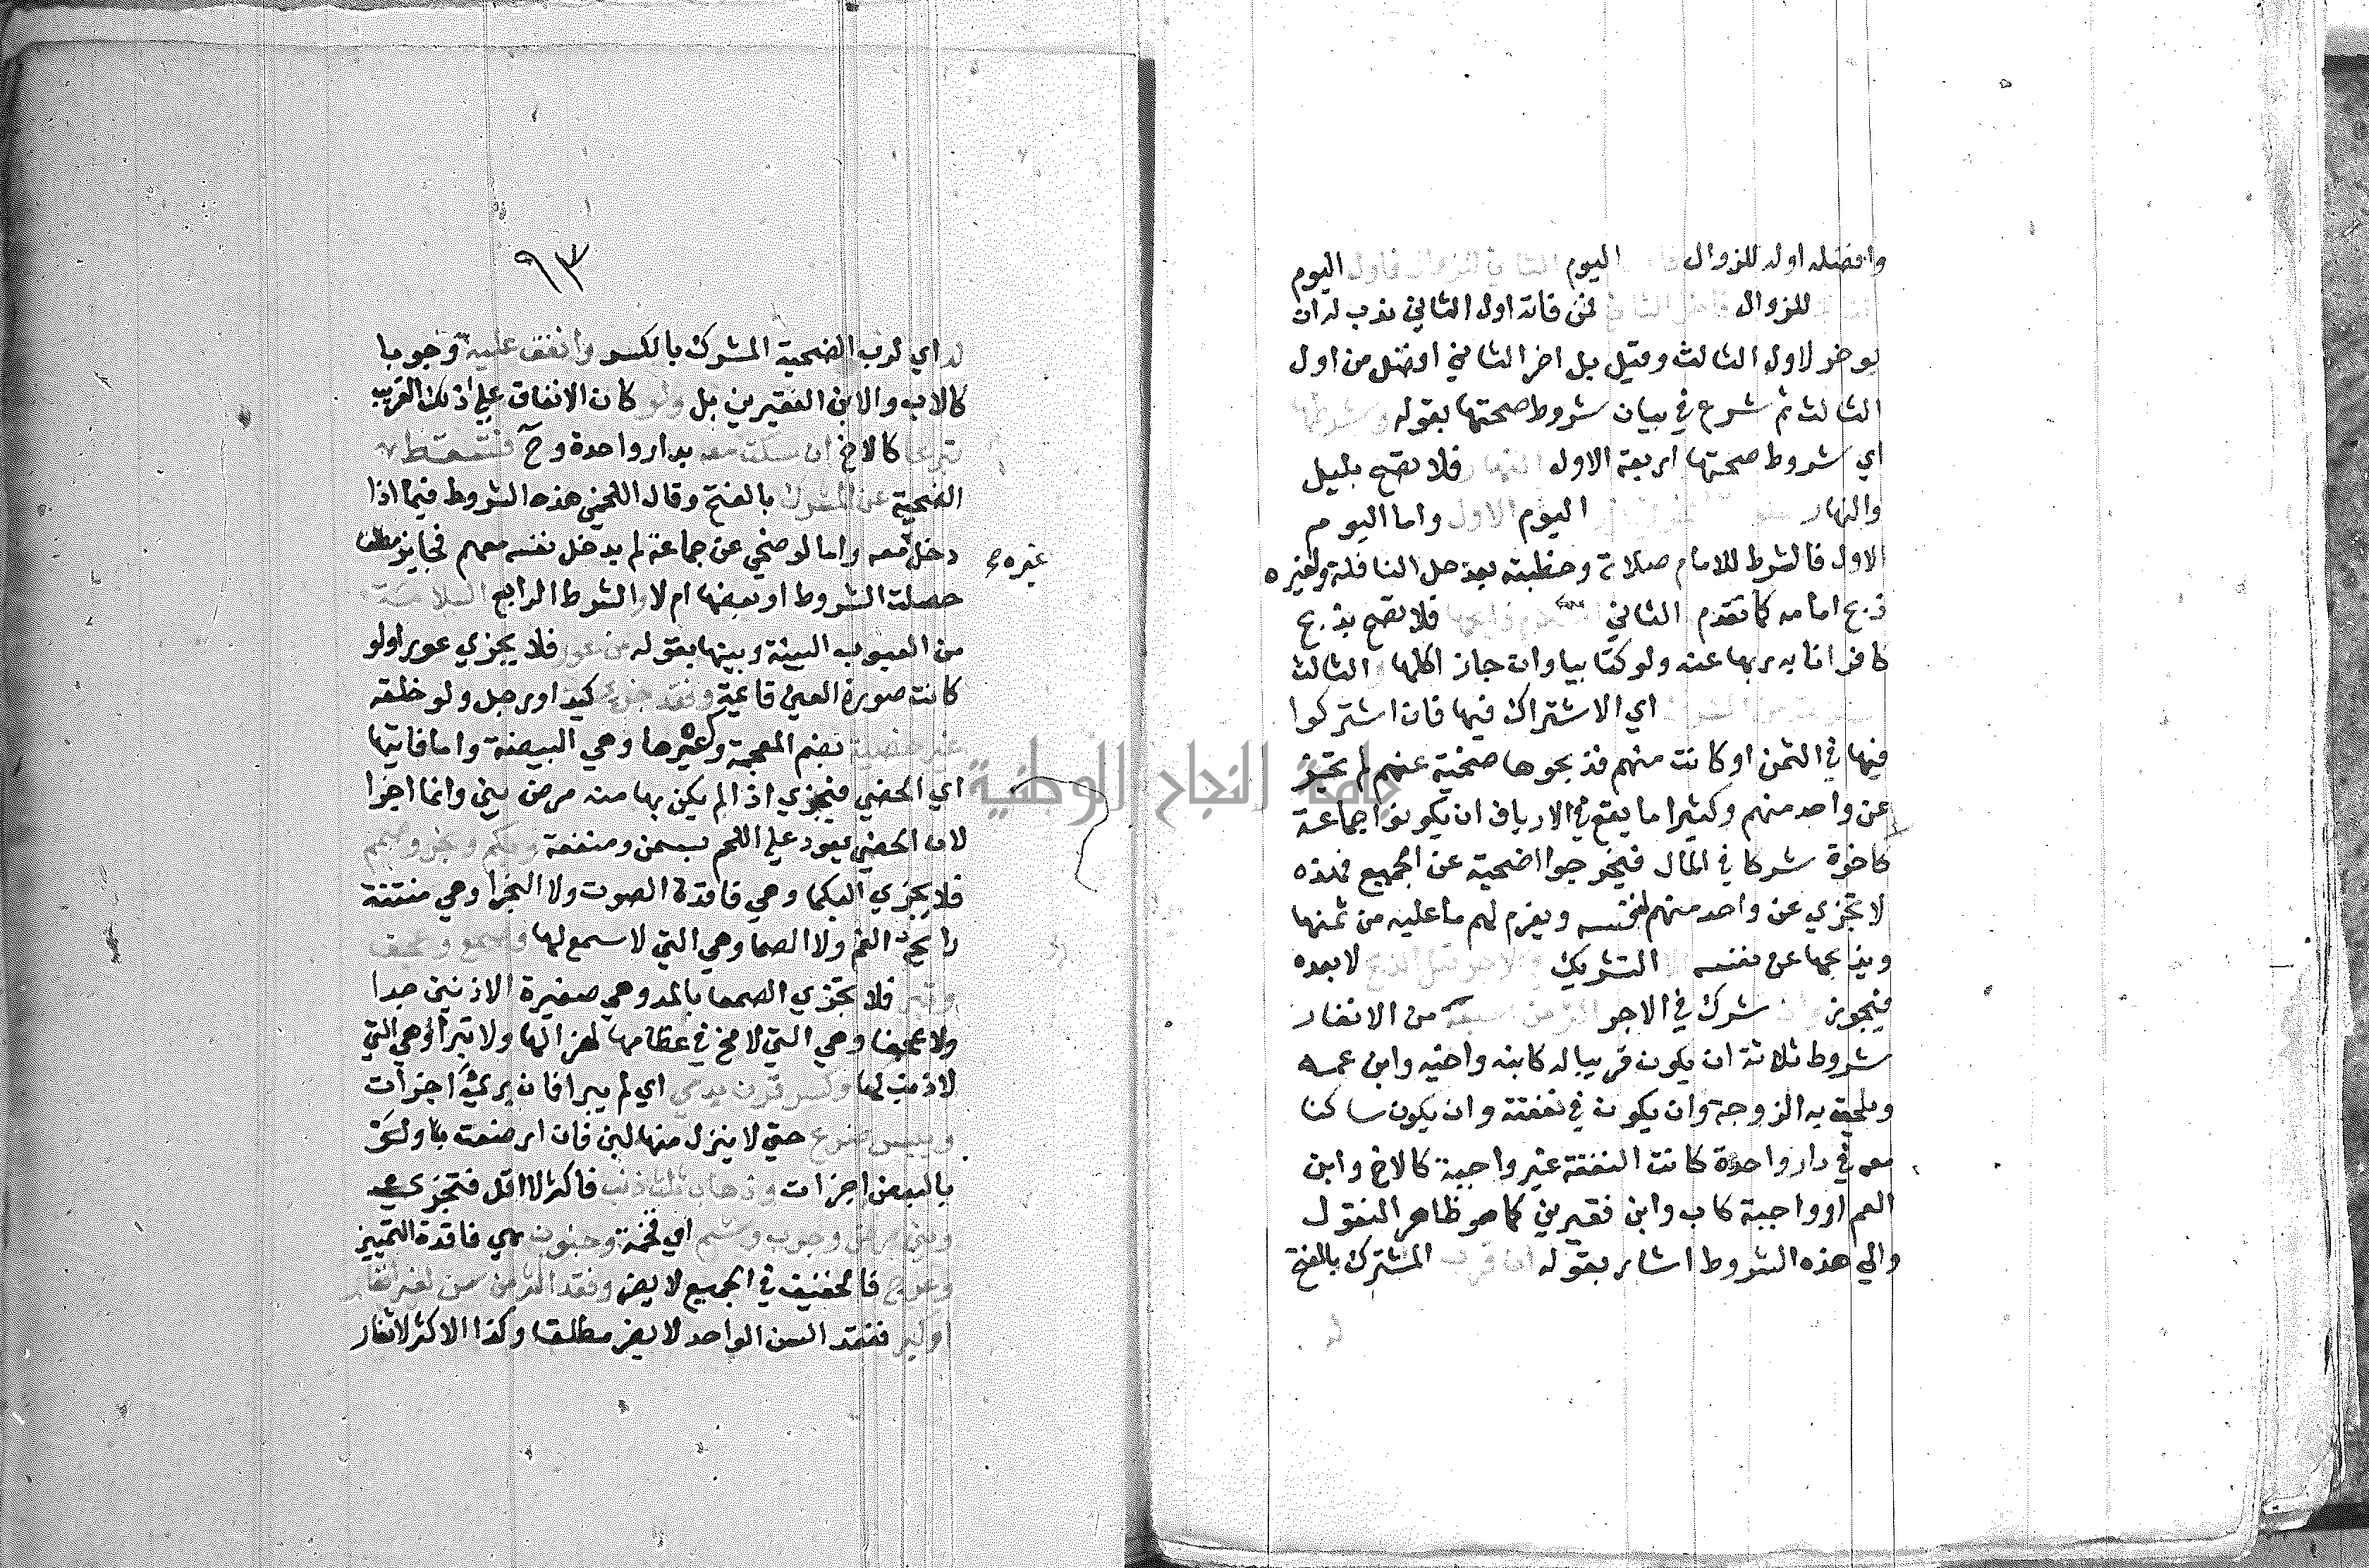 وافضله اوله للزوال اليوم الثاني للزوال فاول اليوم
للزوال لمن فاته اول الثاني ندب له ان
يوخر لاول الثالث وقيل بل اخر الثاني افضل من اول
الثالث ثم شرع في بيان شروط صحتها بقوله وشرطها
اي شروط صحتها اربعة الاول النهار فلا تصح بليل
والنهار اليوم الاول واما اليوم
الاول فالشرط للامام صلاته وخطبته بعد حل النافلة ولغيره
ذبح امامه كما تقدم الثاني فلا تصح بذبح
كافر انابه ربها عنه ولو كتابيا وان جاز اكلها الثالث
اي الاشتراك فيها فان اشتركوا
فيها في الثمن او كانت منهم فذبحوها ضحية عنهم لم تجز
عن واحد منهم وكثيرا ما يقع في الارياف ان يكونوا جماعة
كاخوة شركا في المال فيخرجوا اضحية عن الجميع فهذه
لا تجزي عن واحد منهم ويغرم لهم ما عليه من ثمنها
ويذبحها عن نفسه الا التشريك في الاجر قبل الذبح لا بعده
فيجوز وان شرك في الاجر اكثر من سبعة من الانفار
شروط ثلاثة ان يكون قريبا له كابنه واخيه وابن عمه
ويلحق به الزوجة وان يكون في نفقته وان يكون ساكنا
معه في دار واحدة كانت النفقة غير واجبة كالاخ وابن
العم او واجبة كاب وابن فقيرين كما هو ظاهر النقول
والي هذه الشروط اشار بقوله ان قرب المشترك بالفتح
له
٩٣
له اي لرب الضحية المشرك بالكسر وانفق عليه وجوبا
كالاب والابن الفقيرين بل ولو كان الانفاق علي ذلك القريب
تبرعا كالاخ ان سكن معه بدار واحدة وح فتسقط
الضحية عن المشرك بالفتح وقال اللخمي هذه الشروط فيما اذا
دخل معه واما لو ضحي عن جماعة لم يدخل نفسه معهم فجايز مطلقا
غيره
حصلت الشروط او بعضها ام لا والشرط الرابع السلامة
من العيوب البينة وبينها بقوله من عور فلا يجزي عورا ولو
كانت صورة العين قايمة وفقد جزء كيد او رجل ولو خلقة
غير خصية بضم المعجمة وكسرها وهي البيضة واما فاقدها
اي الخصي فيجزي اذا لم يكن بها منه مرض بين وانما اجزا
لان الخصي يعود علي اللحم بسمن ومنفعة وبكم وبخر وصمم
فلا يجزي البكما وهي فاقدة الصوت ولا البخرا وهي منتنة
رايحة الفم ولا الصما وهي التي لا سمع لها وصمع وعجف
وبتر فلا تجزي الصمعا بالمد وهي صغيرة الاذنين جدا
ولا عجفا وهي التي لا مخ في عظامها لهزالها ولا بترا وهي التي
لا ذنب لها وكسر قرن يدمي اي لم يبرا فان بري اجزات
ويبس ضرع حتي لا ينزل منها لبن فان ارضعت ولو
بالبعض اجزات وذهاب ثلث ذنب فاكثر لا اقل فتجزي
وبين مرض وجرب وبشم اي تخمة وجنون اي فاقدة التمييز
وعرج فالخفيف في الجميع لا يضر وفقد اكثر من سن لغير اثغار
او كبر ففقد السن الواحد لا يضر مطلقا وكذا الاكثر لاثغار
جامعة النجاح الوطنية